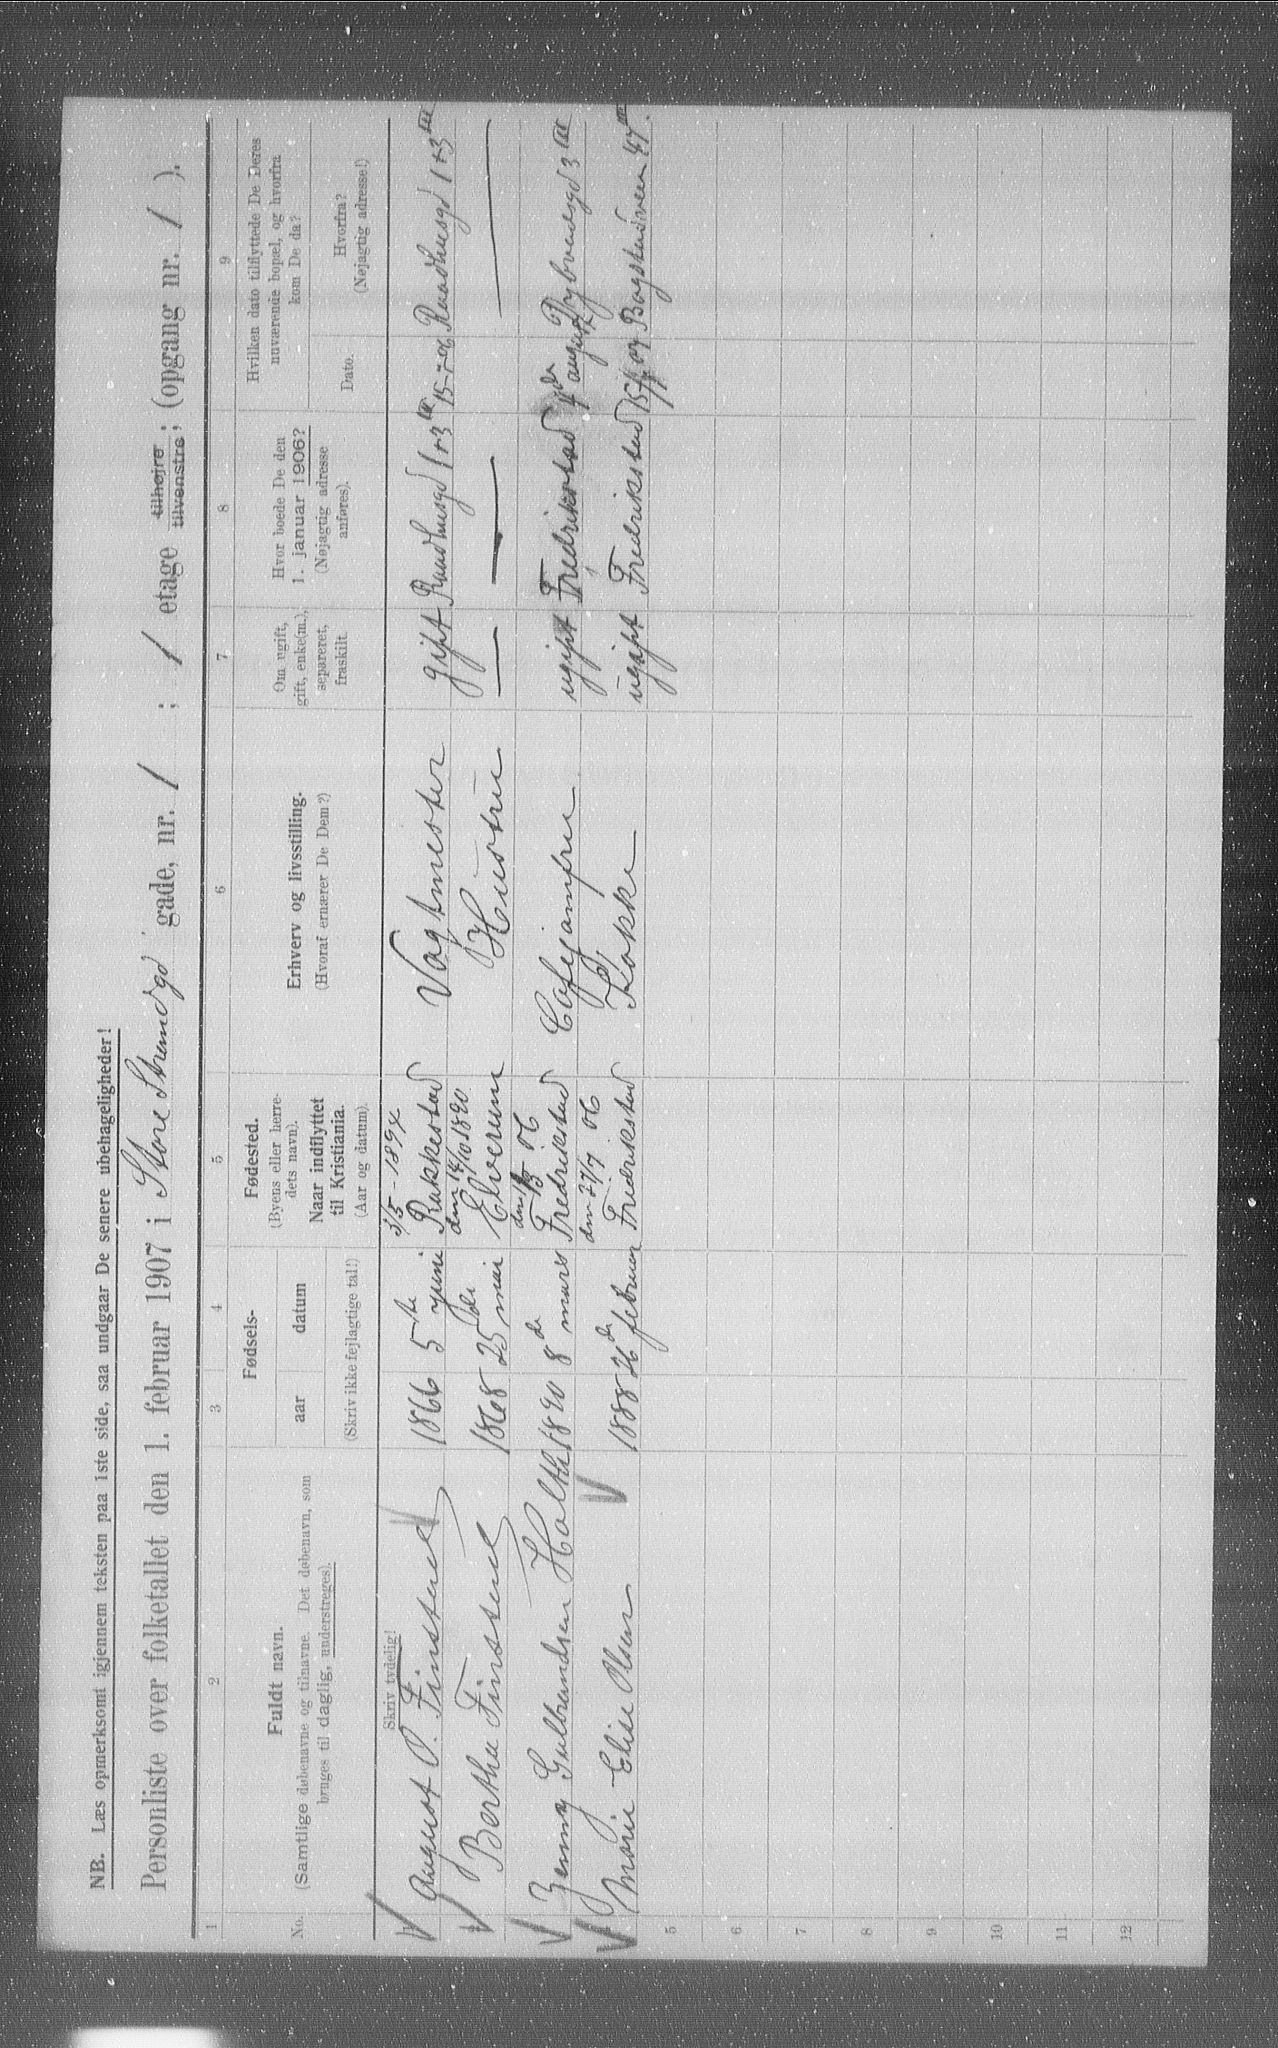 NB. Læs opmerksomt igjennem teksten paa 1ste side, saa undgaar De senere ubehageligheder!
Personliste over folketallet den 1. februar 1907 i Store Strandgd gade, nr. 1 ; 1 etage tilhøjre tilvenstre; (opgang nr. 1 ).
1 2 3 4 5 6 7 8 9
No.
Fuldt navn.
(Samtlige døbenavne og tilnavne. Det døbenavn, som
bruges til daglig, understreges).
Fødsels-
aar datum
(Skriv ikke fejlagtige tal!)
Fødested.
(Byens eller herre-
dets navn).
Naar indflyttet
til Kristiania.
(Aar og datum).
Erhverv og livsstilling.
(Hvoraf ernærer De Dem?)
Om ugift,
gift, enke(m.),
separeret,
fraskilt.
Hvor boede De den
1. januar 1906?
(Nøjagtig adresse
anføres).
Hvilken dato tilflyttede De Deres
nuværende bopæl, og hvorfra
kom De da?
Dato.
Hvorfra?
(Nøjagtig adresse!)
Skriv tydelig!
August O. Finstad 1866 5te juni 3/5-1894 Rakkestad Vagtmester gift Raadhusgd 1+3 III 15-7-06 Raadhusgd 1+3 III
Bertha Finstad 1868 25de mai den 14/10 1890 Elverum Hustru
Gulbrandsen Holth 1890 8de mars 06 Fredrikstad Cafejomfru ugift Fredrikstad 4de august 3 III
Marie Elise Olsen 1888 26de februar den 27/7 06 Fredrikstad Kokke ugift Fredrikstad 07 Bogstadveien 47 III.
5
6
7
8
9
10
11
12